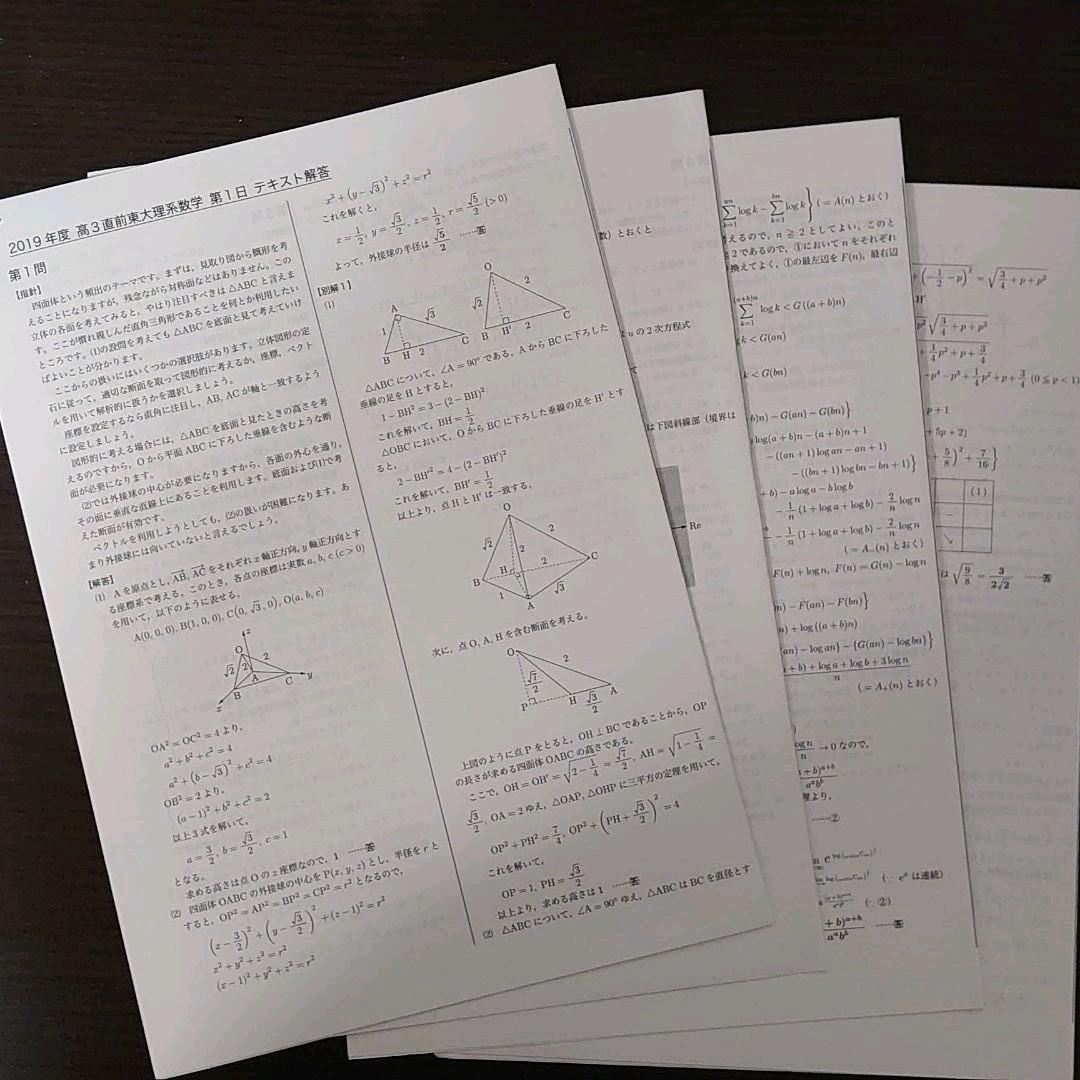 2019年度 高3直前東大理系数学 第1日 テキスト解答
第1問
【指針】
四面体という頻出のテーマです。まずは、見取り図から概形を考
えることになりますが、残念ながら対称面などはありません。この
立体の各面を考えてみると、やはり注目すべきは△ABCと言えま
す。ここが慣れ親しんだ直角三角形であることを何とか利用したい
ところです。(1)の設問を考えても△ABCを底面と見て考えていけ
ばよいことが分かります。
ここからの扱いにはいくつかの選択肢があります。立体図形の定
石に従って、適切な断面を取って図形的に考えるか、座標、ベクト
ルを用いて解析的に扱うかを選択しましょう。
座標を設定するなら直角に注目し、AB, ACが軸と一致するよう
に設定しましょう。
図形的に考える場合には、△ABCを底面と見たときの高さを考
えるのですから、Oから平面ABCに下ろした垂線を含むような断
面が必要になります。
(2)では外接球の中心が必要になりますから、各面の外心を通り、
その面に垂直な直線上にあることを利用します。底面および(1)で考
えた断面が有効です。
ベクトルを利用しようとしても、(2)の扱いが困難になります。あ
まり外接球には向いていないと言えるでしょう。
【解答】
(1) Aを原点とし、AB, ACをそれぞれx軸正方向、y軸正方向とす
る座標系で考える。このとき、各点の座標は実数a, b, c (c>0)
を用いて、以下のように表せる。
A(0, 0, 0), B(1, 0, 0), C(0, √3, 0), O(a, b, c)
z
O
√2 2 2
A
B C y
x
OA²=OC²=4より、
a²+b²+c²=4
a²+(b−√3)²+c²=4
OB²=2より、
(a−1)²+b²+c²=2
以上3式を解いて、
a=3/2, b=√3/2, c=1
となる。
求める高さは点Oのz座標なので、1 ……答
(2) 四面体OABCの外接球の中心をP(x, y, z)とし、半径をrと
すると、OP²=AP²=BP²=CP²=r²となるので、
(x−3/2)²+(y−√3/2)²+(z−1)²=r²
x²+y²+z²=r²
(x−1)²+y²+z²=r²
x²+(y−√3)²+z²=r²
これを解くと、
x=1/2, y=√3/2, z=1/2, r=√5/2 (>0)
よって、外接球の半径は√5/2 ……答
【別解1】
(1)
A
1 √3
B H 2 C
O
√2 2
B H′ 2 C
△ABCについて、∠A=90°である。AからBCに下ろした
垂線の足をHとすると、
1−BH²=3−(2−BH)²
これを解いて、BH=1/2
△OBCにおいて、OからBCに下ろした垂線の足をH′とす
ると、
2−BH′²=4−(2−BH′)²
これを解いて、BH′=1/2
以上より、点HとH′は一致する。
O
√2 2
2
H 2
B C
1 √3
A
次に、点O, A, Hを含む断面を考える。
O
2
√7/2
P H √3/2 A
上図のように点Pをとると、OH⊥BCであることから、OP
の長さが求める四面体OABCの高さである。
ここで、OH=OH′=√(2−1/4)=√7/2, AH=√(1−1/4)=
√3/2, OA=2ゆえ、△OAP, △OHPに三平方の定理を用いて、
OP²+PH²=7/4, OP²+(PH+√3/2)²=4
これを解いて、
OP=1, PH=√3/2
以上より、求める高さは1 ……答
(2) △ABCについて、∠A=90°ゆえ、△ABCはBCを直径とす
数) とおくと
uの2次方程式
は下図斜線部 (境界は
Re
∑log k−∑log k} (=A(n)とおく)
えるので、n≧2としてよい。このと
2であるので、①においてnをそれぞれ
換えてよく、①の最左辺をF(n)、最右辺
∑ log k<G((a+b)n)
k<G(an)
k<G(bn)
b)n)−G(an)−G(bn)}
log(a+b)n−(a+b)n+1
−((an+1)log an−an+1)
−((bn+1)log bn−bn+1)}
+b)−a log a−b log b
−1/n(1+log a+log b)−2/n log n
−1/n(1+log a+log b)−2/n log n
(=A₋(n)とおく)
F(n)+log n, F(n)=G(n)−log n
n)−F(an)−F(bn)}
n)+log((a+b)n)
(an)−log an}−{G(an)−log bn)}
+b)+log a+log b+3log n
n
(=A₊(n)とおく)
log n/n→0なので、
+b)^(a+b)
a^a b^b
理より、
……②
(∵ eˣは連続)
(∵②)
+b)^(a+b)/a^a b^b ……答
+(−1/2−p)²=√(3/4+p+p²)
H′
√(3/4+p+p²)
+1/4p²+p+3/4
−p⁴−p³+1/4p²+p+3/4 (0≦p<1)
p+1
+5p+2)
+5/8)²+7/16}
(1)
−
↘
は√(9/8)=3/(2√2) ……答